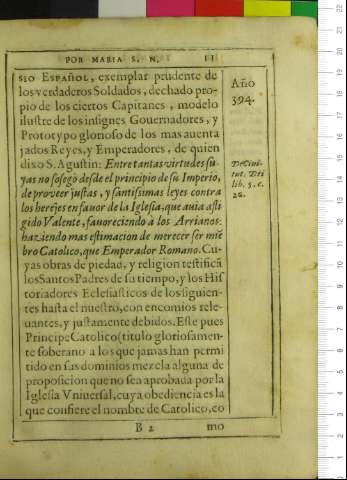 POR MARIA S. N. 11
SIO ESPAÑOL, exemplar prudente de
los verdaderos Soldados, dechado pro-
pio de los ciertos Capitanes, modelo
ilustre de los insignes Gouernadores, y
Prototypo glorioso de los mas auenta
jados Reyes, y Emperadores, de quien
dixo S. Agustin: Entre tantas virtudes su
yas no sosegò desde el principio de su Imperio,
de proveer justas, y santissimas leyes contra
los herejes en fauor de la Iglesia, que auia afli
gido Valente, fauoreciendo à los Arrianos:
haziendo mas estimacion de merecer ser miē
bro Catolico, que Emperador Romano. Cu-
yas obras de piedad, y religion testificā
los Santos Padres de su tiempo, y los His
toriadores Eclesiasticos de los siguien-
tes hasta el nuestro, con encomios rele-
uantes, y justamente debidos. Este pues
Principe Catolico (titulo gloriosamen-
te soberano a los que jamas han permi
tido en sus dominios mezcla alguna de
proposicion que no sea aprobada por la
Iglesia Vniuersal, cuya obediencia es la
que confiere el nombre de Catolico, co
B 2 mo
Año
394.
De Ciui-
tat. Dei
lib. 5. c.
26.